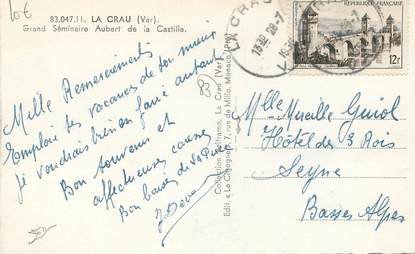 10€
83.047.11. LA CRAU (Var).
Grand Séminaire Aubert de la Castille.
83
Mille Remerciements
Emploi tes vacances de ton mieux
Je voudrais bien en faire autant
Bon souvenir et
affectueuse
Bon baiser de
Collection Beltramo, La Crau (Var)
Edit. « La Cigogne », 7, rue de Millo, Monaco
LA CRAU
13H30 28-7
REPUBLIQUE FRANÇAISE
12f
Mlle Mireille Guiol
Hôtel des 3 Rois
Seyne
Basses Alpes